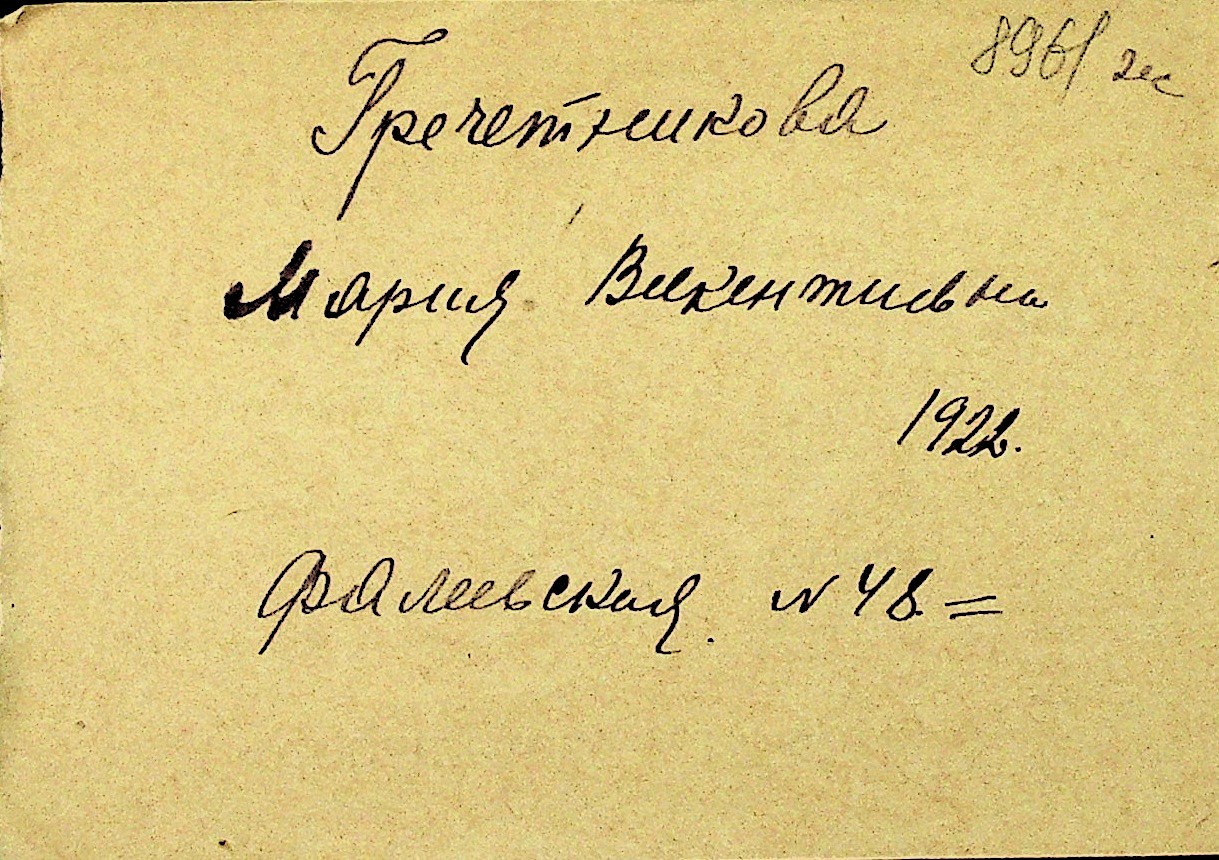 8961 гес
Гречетникова
Мария Викентиевна
1922.
Фалеевская. N 48. =